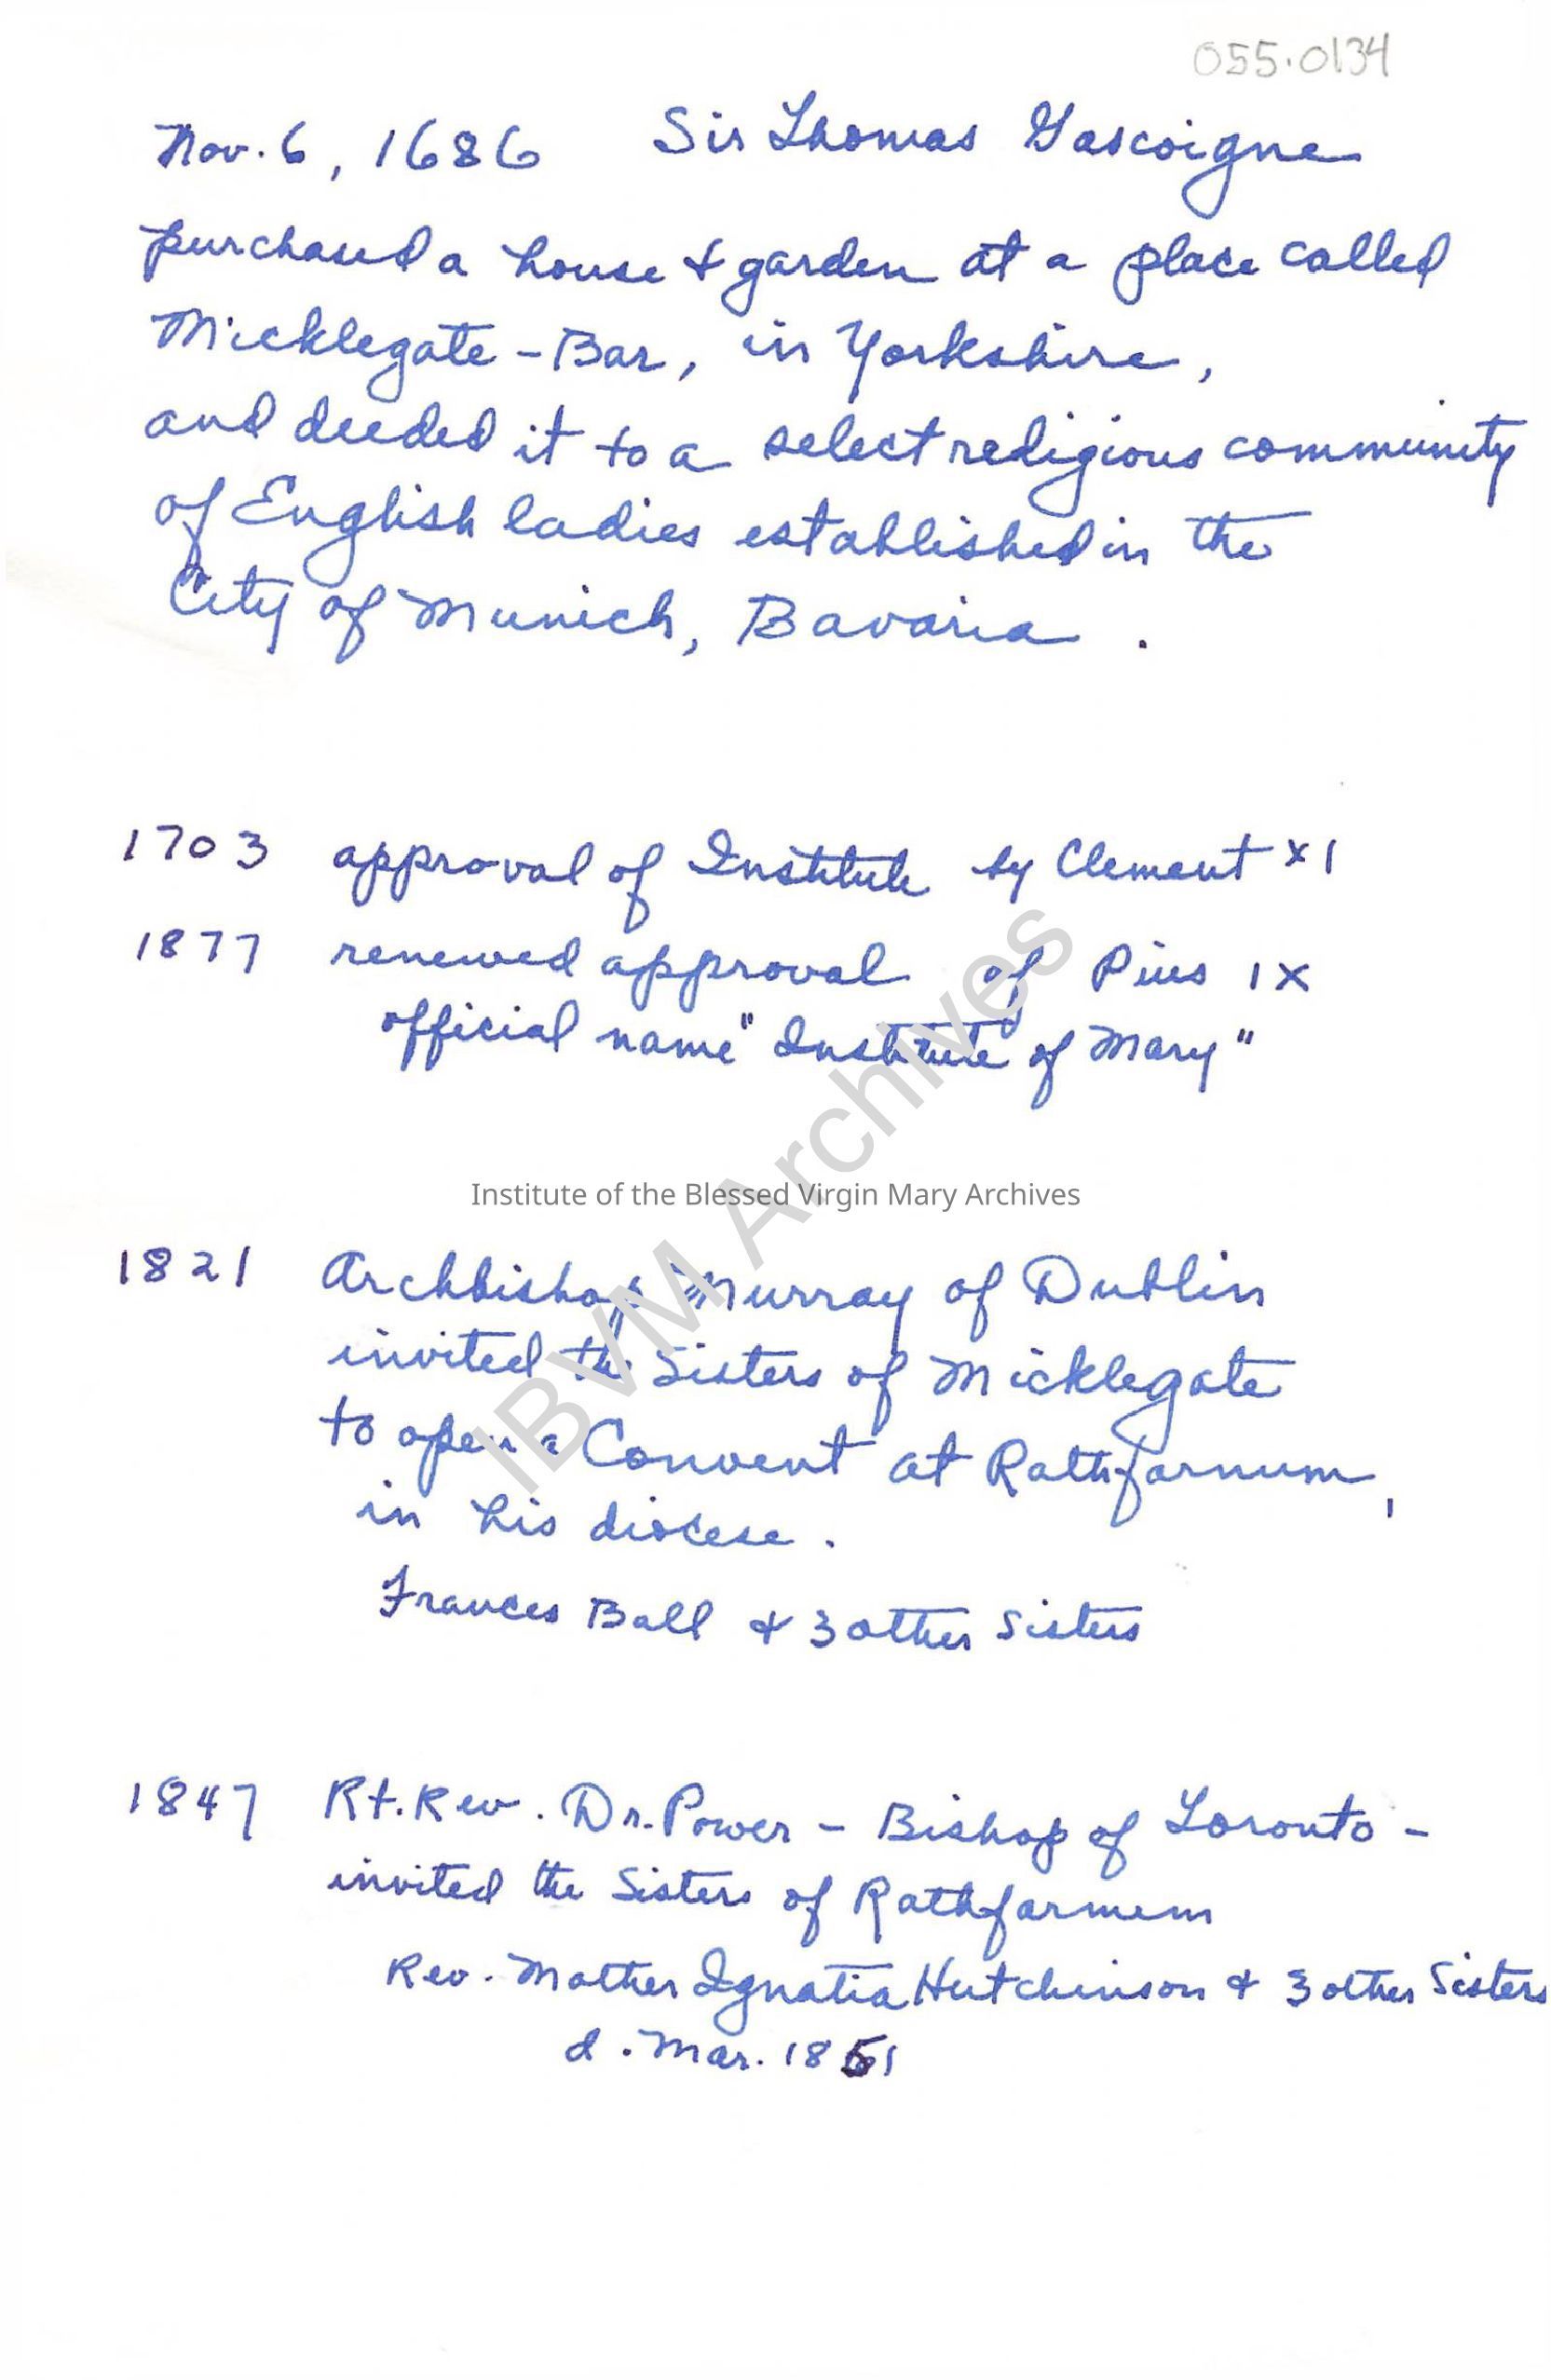 055.0134
Nov. 6, 1686 Sir Thomas Gascoigne
purchased a house & garden at a place called
Micklegate - Bar, in Yorkshire,
and deeded it to a select religious community
of English ladies established in the
City of Munich, Bavaria .
1703 approval of Institute by Clement XI
1877 renewed approval of Pius IX
official name "Institute of Mary"
Institute of the Blessed Virgin Mary Archives
IBVM Archives
1821 Archbishop Murray of Dublin
invited the Sisters of Micklegate
to open a Convent at Rathfarnum,
in his diocese .
Frances Ball & 3 other Sisters
1847 Rt. Rev. Dr. Power - Bishop of Toronto -
invited the Sisters of Rathfarmem
Rev. Mother Ignatia Hutchinson & 3 other Sisters
d. Mar. 1851